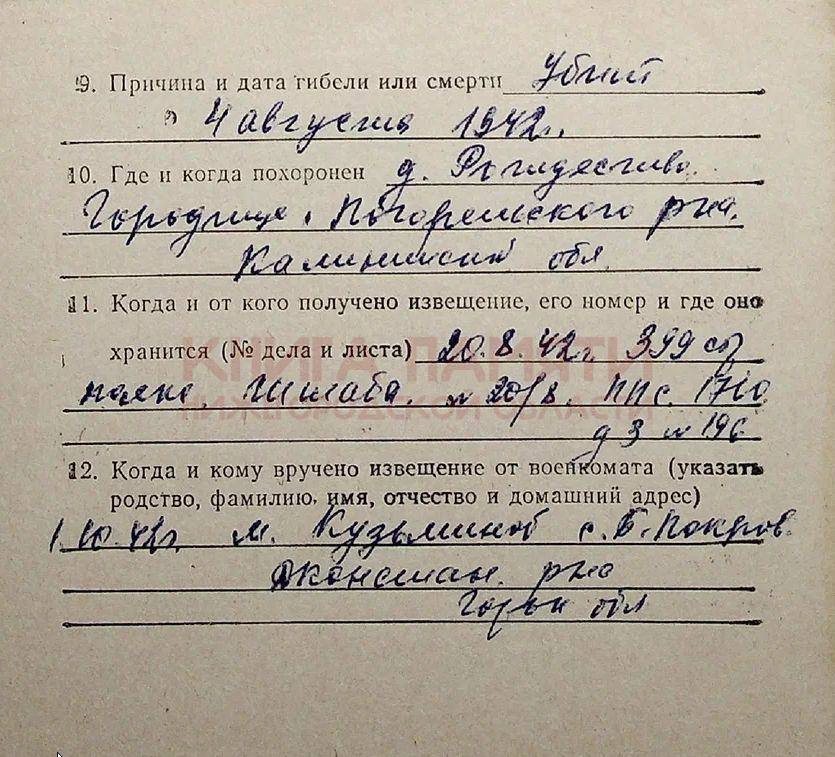 9. Причина и дата гибели или смерти Убит
4 августа 1942г.
10. Где и когда похоронен д. Рождество.
Городище, Погорельского р-на.
Калининской обл
11. Когда и от кого получено извещение, его номер и где оно
хранится (№ дела и листа) 20.8.42г. 399
полка. № 20/8. ППС. 1710
д 3 л 196
КНИГА ПАМЯТИ
НИЖЕГОРОДСКОЙ ОБЛАСТИ
12. Когда и кому вручено извещение от военкомата (указать
родство, фамилию, имя, отчество и домашний адрес)
1.10.42г. м. Кузьминой с. Б-Покров.
Дконстан. р-на
Горьк обл